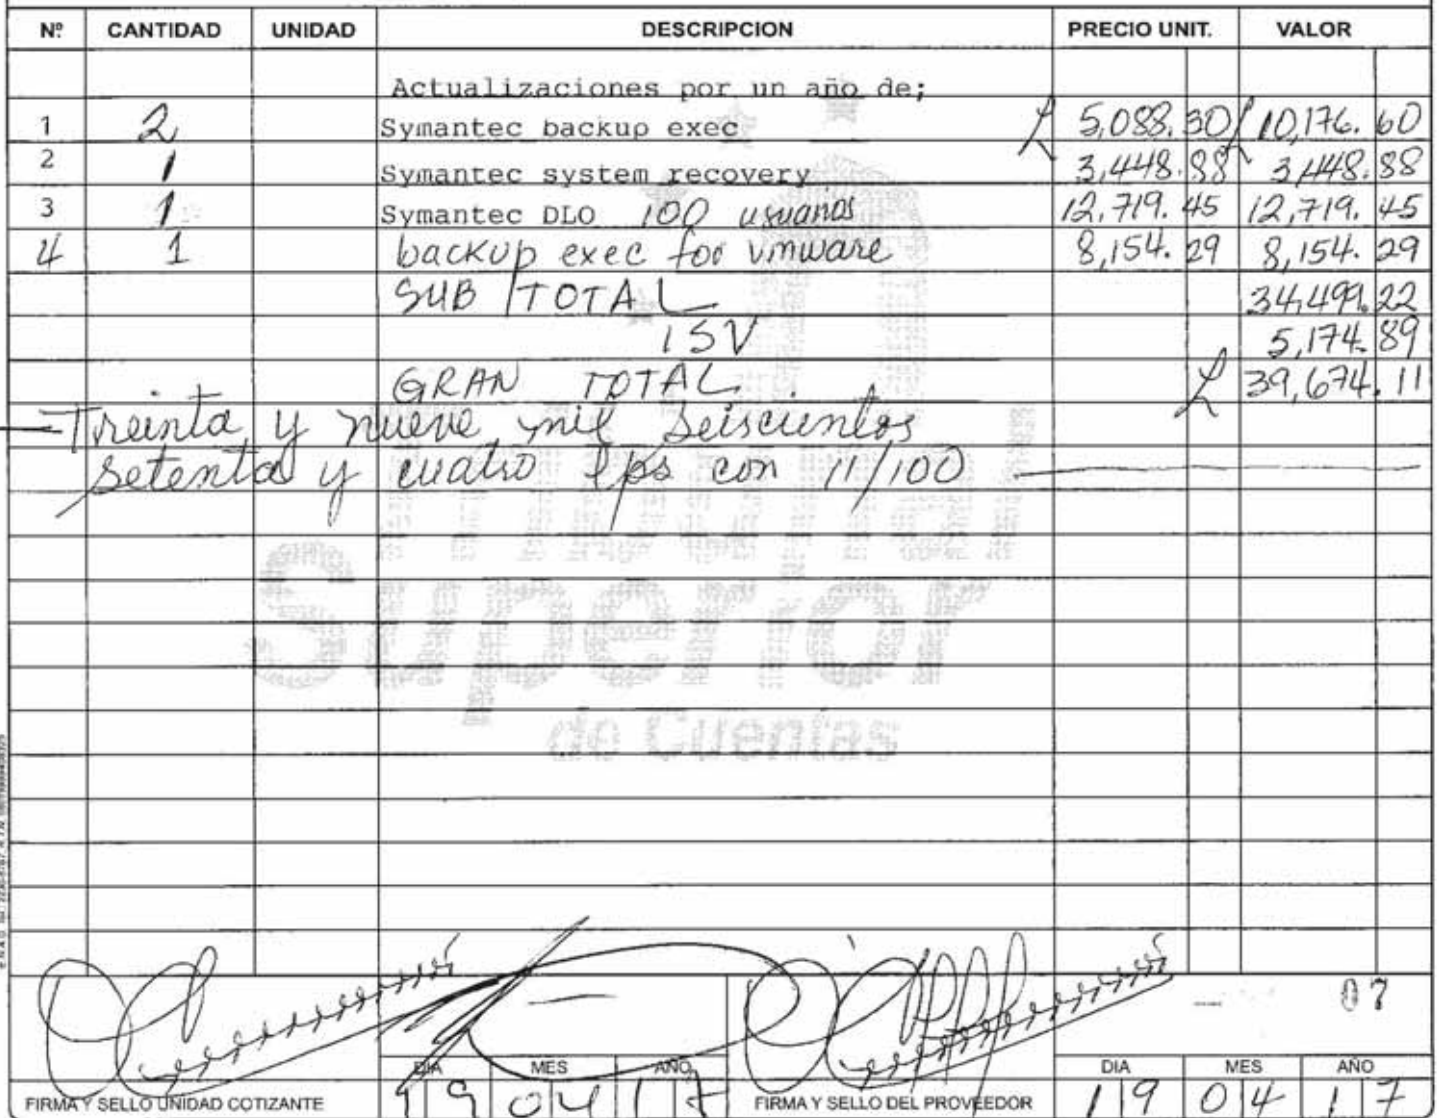 Nº CANTIDAD UNIDAD DESCRIPCION PRECIO UNIT. VALOR
Actualizaciones por un año de;
1 2 Symantec backup exec L 5,088.30 L 10,176.60
2 1 Symantec system recovery 3,448.88 3,448.88
3 1 Symantec DLO 100 usuarios 12,719.45 12,719.45
4 1 backup exec for vmware 8,154.29 8,154.29
SUB TOTAL 34,499.22
ISV 5,174.89
GRAN TOTAL. L 39,674.11
Treinta y nueve mil seiscientos
setenta y cuatro lps con 11/100
Superior
de Cuentas
07
DIA MES AÑO DIA MES AÑO
FIRMA Y SELLO UNIDAD COTIZANTE 19 04 17 FIRMA Y SELLO DEL PROVEEDOR 19 04 17